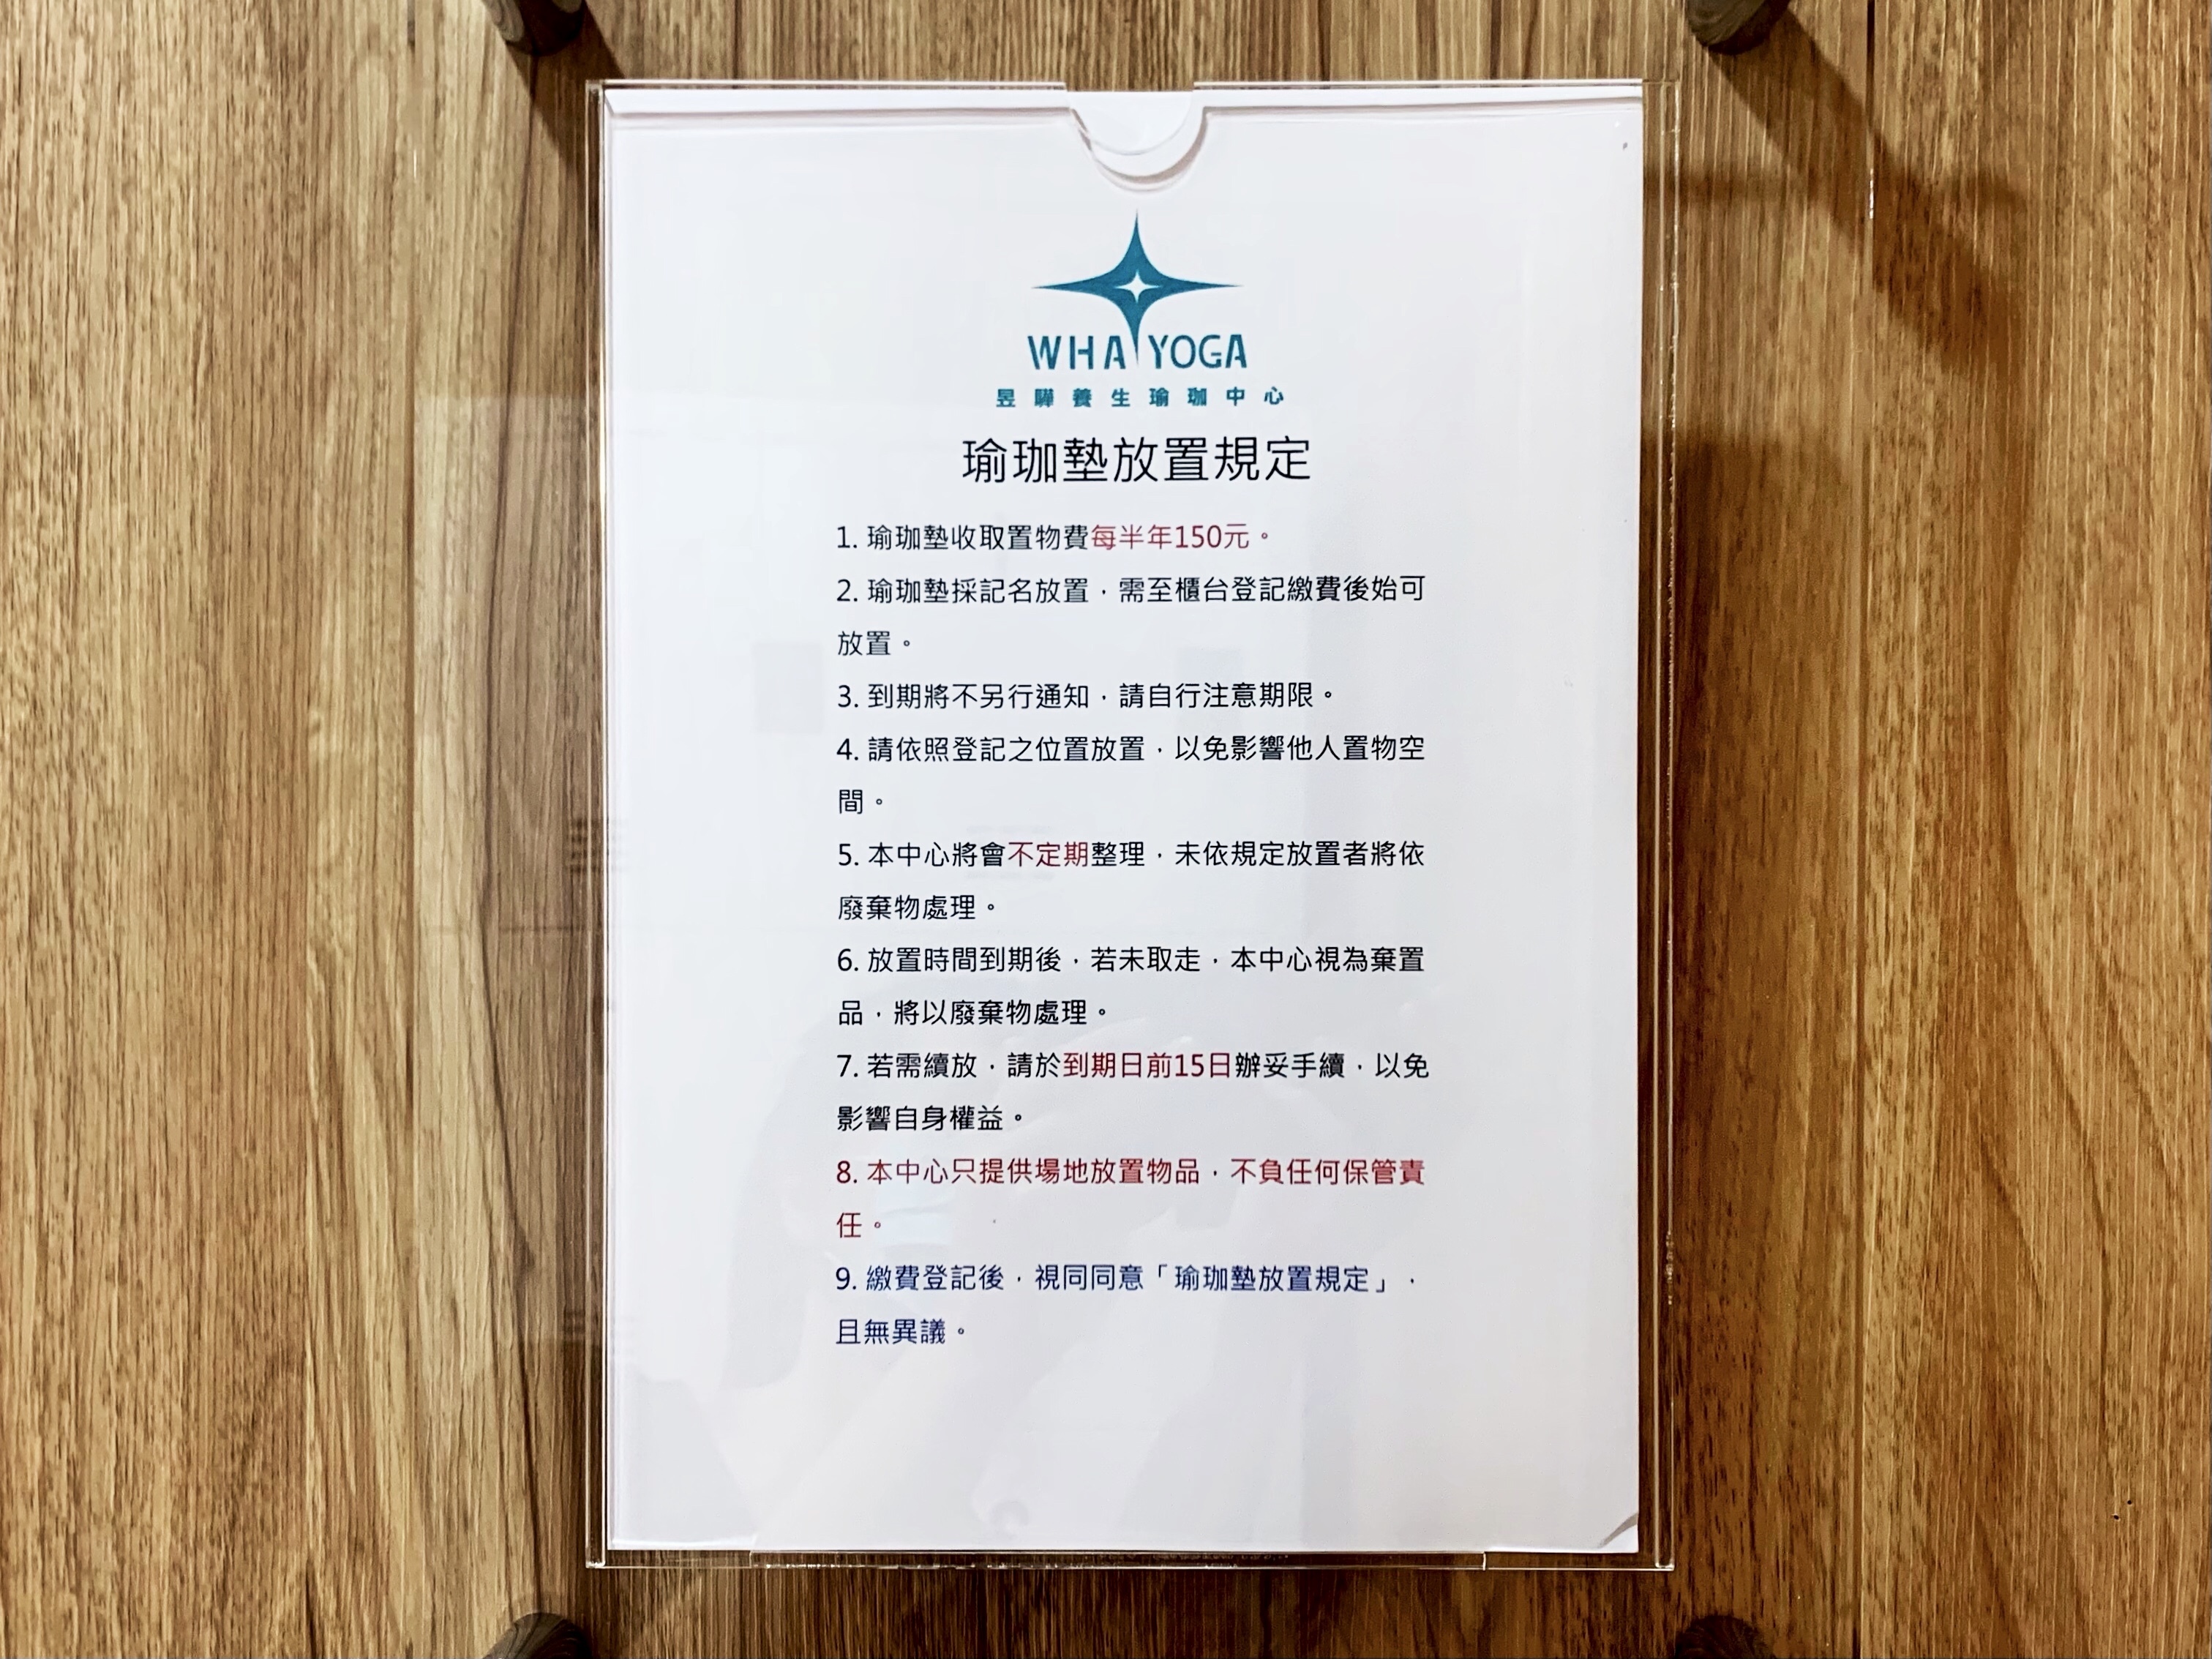 WHA YOGA
昱驊養生瑜珈中心
瑜珈墊放置規定
1. 瑜珈墊收取置物費每半年150元。
2. 瑜珈墊採記名放置，需至櫃台登記繳費後始可
放置。
3. 到期將不另行通知，請自行注意期限。
4. 請依照登記之位置放置，以免影響他人置物空
間。
5. 本中心將會不定期整理，未依規定放置者將依
廢棄物處理。
6. 放置時間到期後，若未取走，本中心視為棄置
品，將以廢棄物處理。
7. 若需續放，請於到期日前15日辦妥手續，以免
影響自身權益。
8. 本中心只提供場地放置物品，不負任何保管責
任。
9. 繳費登記後，視同同意「瑜珈墊放置規定」，
且無異議。